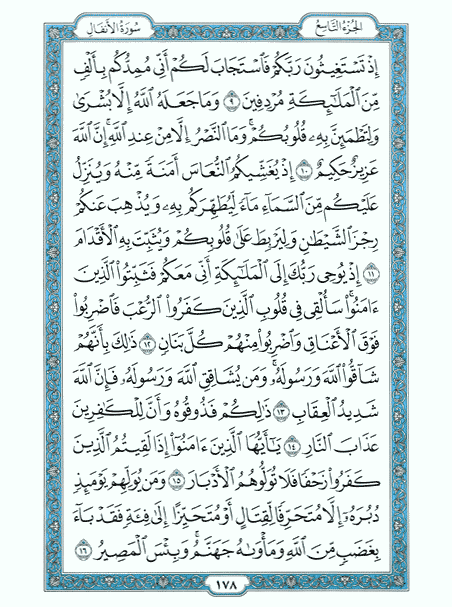 سُورَةُ الأَنفَالِ
الجُزءُ التَّاسِعُ
إِذْ تَسْتَغِيثُونَ رَبَّكُمْ فَٱسْتَجَابَ لَكُمْ أَنِّى مُمِدُّكُم بِأَلْفٍ
مِّنَ ٱلْمَلَـٰٓئِكَةِ مُرْدِفِينَ ٩ وَمَا جَعَلَهُ ٱللَّهُ إِلَّا بُشْرَىٰ
وَلِتَطْمَئِنَّ بِهِۦ قُلُوبُكُمْ ۚ وَمَا ٱلنَّصْرُ إِلَّا مِنْ عِندِ ٱللَّهِ ۚ إِنَّ ٱللَّهَ
عَزِيزٌ حَكِيمٌ ١٠ إِذْ يُغَشِّيكُمُ ٱلنُّعَاسَ أَمَنَةً مِّنْهُ وَيُنَزِّلُ
عَلَيْكُم مِّنَ ٱلسَّمَآءِ مَآءً لِّيُطَهِّرَكُم بِهِۦ وَيُذْهِبَ عَنكُمْ
رِجْزَ ٱلشَّيْطَـٰنِ وَلِيَرْبِطَ عَلَىٰ قُلُوبِكُمْ وَيُثَبِّتَ بِهِ ٱلْأَقْدَامَ
١١ إِذْ يُوحِى رَبُّكَ إِلَى ٱلْمَلَـٰٓئِكَةِ أَنِّى مَعَكُمْ فَثَبِّتُوا۟ ٱلَّذِينَ
ءَامَنُوا۟ ۚ سَأُلْقِى فِى قُلُوبِ ٱلَّذِينَ كَفَرُوا۟ ٱلرُّعْبَ فَٱضْرِبُوا۟
فَوْقَ ٱلْأَعْنَاقِ وَٱضْرِبُوا۟ مِنْهُمْ كُلَّ بَنَانٍ ١٢ ذَٰلِكَ بِأَنَّهُمْ
شَآقُّوا۟ ٱللَّهَ وَرَسُولَهُۥ ۚ وَمَن يُشَاقِقِ ٱللَّهَ وَرَسُولَهُۥ فَإِنَّ ٱللَّهَ
شَدِيدُ ٱلْعِقَابِ ١٣ ذَٰلِكُمْ فَذُوقُوهُ وَأَنَّ لِلْكَـٰفِرِينَ
عَذَابَ ٱلنَّارِ ١٤ يَـٰٓأَيُّهَا ٱلَّذِينَ ءَامَنُوٓا۟ إِذَا لَقِيتُمُ ٱلَّذِينَ
كَفَرُوا۟ زَحْفًا فَلَا تُوَلُّوهُمُ ٱلْأَدْبَارَ ١٥ وَمَن يُوَلِّهِمْ يَوْمَئِذٍ
دُبُرَهُۥٓ إِلَّا مُتَحَرِّفًا لِّقِتَالٍ أَوْ مُتَحَيِّزًا إِلَىٰ فِئَةٍ فَقَدْ بَآءَ
بِغَضَبٍ مِّنَ ٱللَّهِ وَمَأْوَىٰهُ جَهَنَّمُ ۖ وَبِئْسَ ٱلْمَصِيرُ ١٦
١٧٨